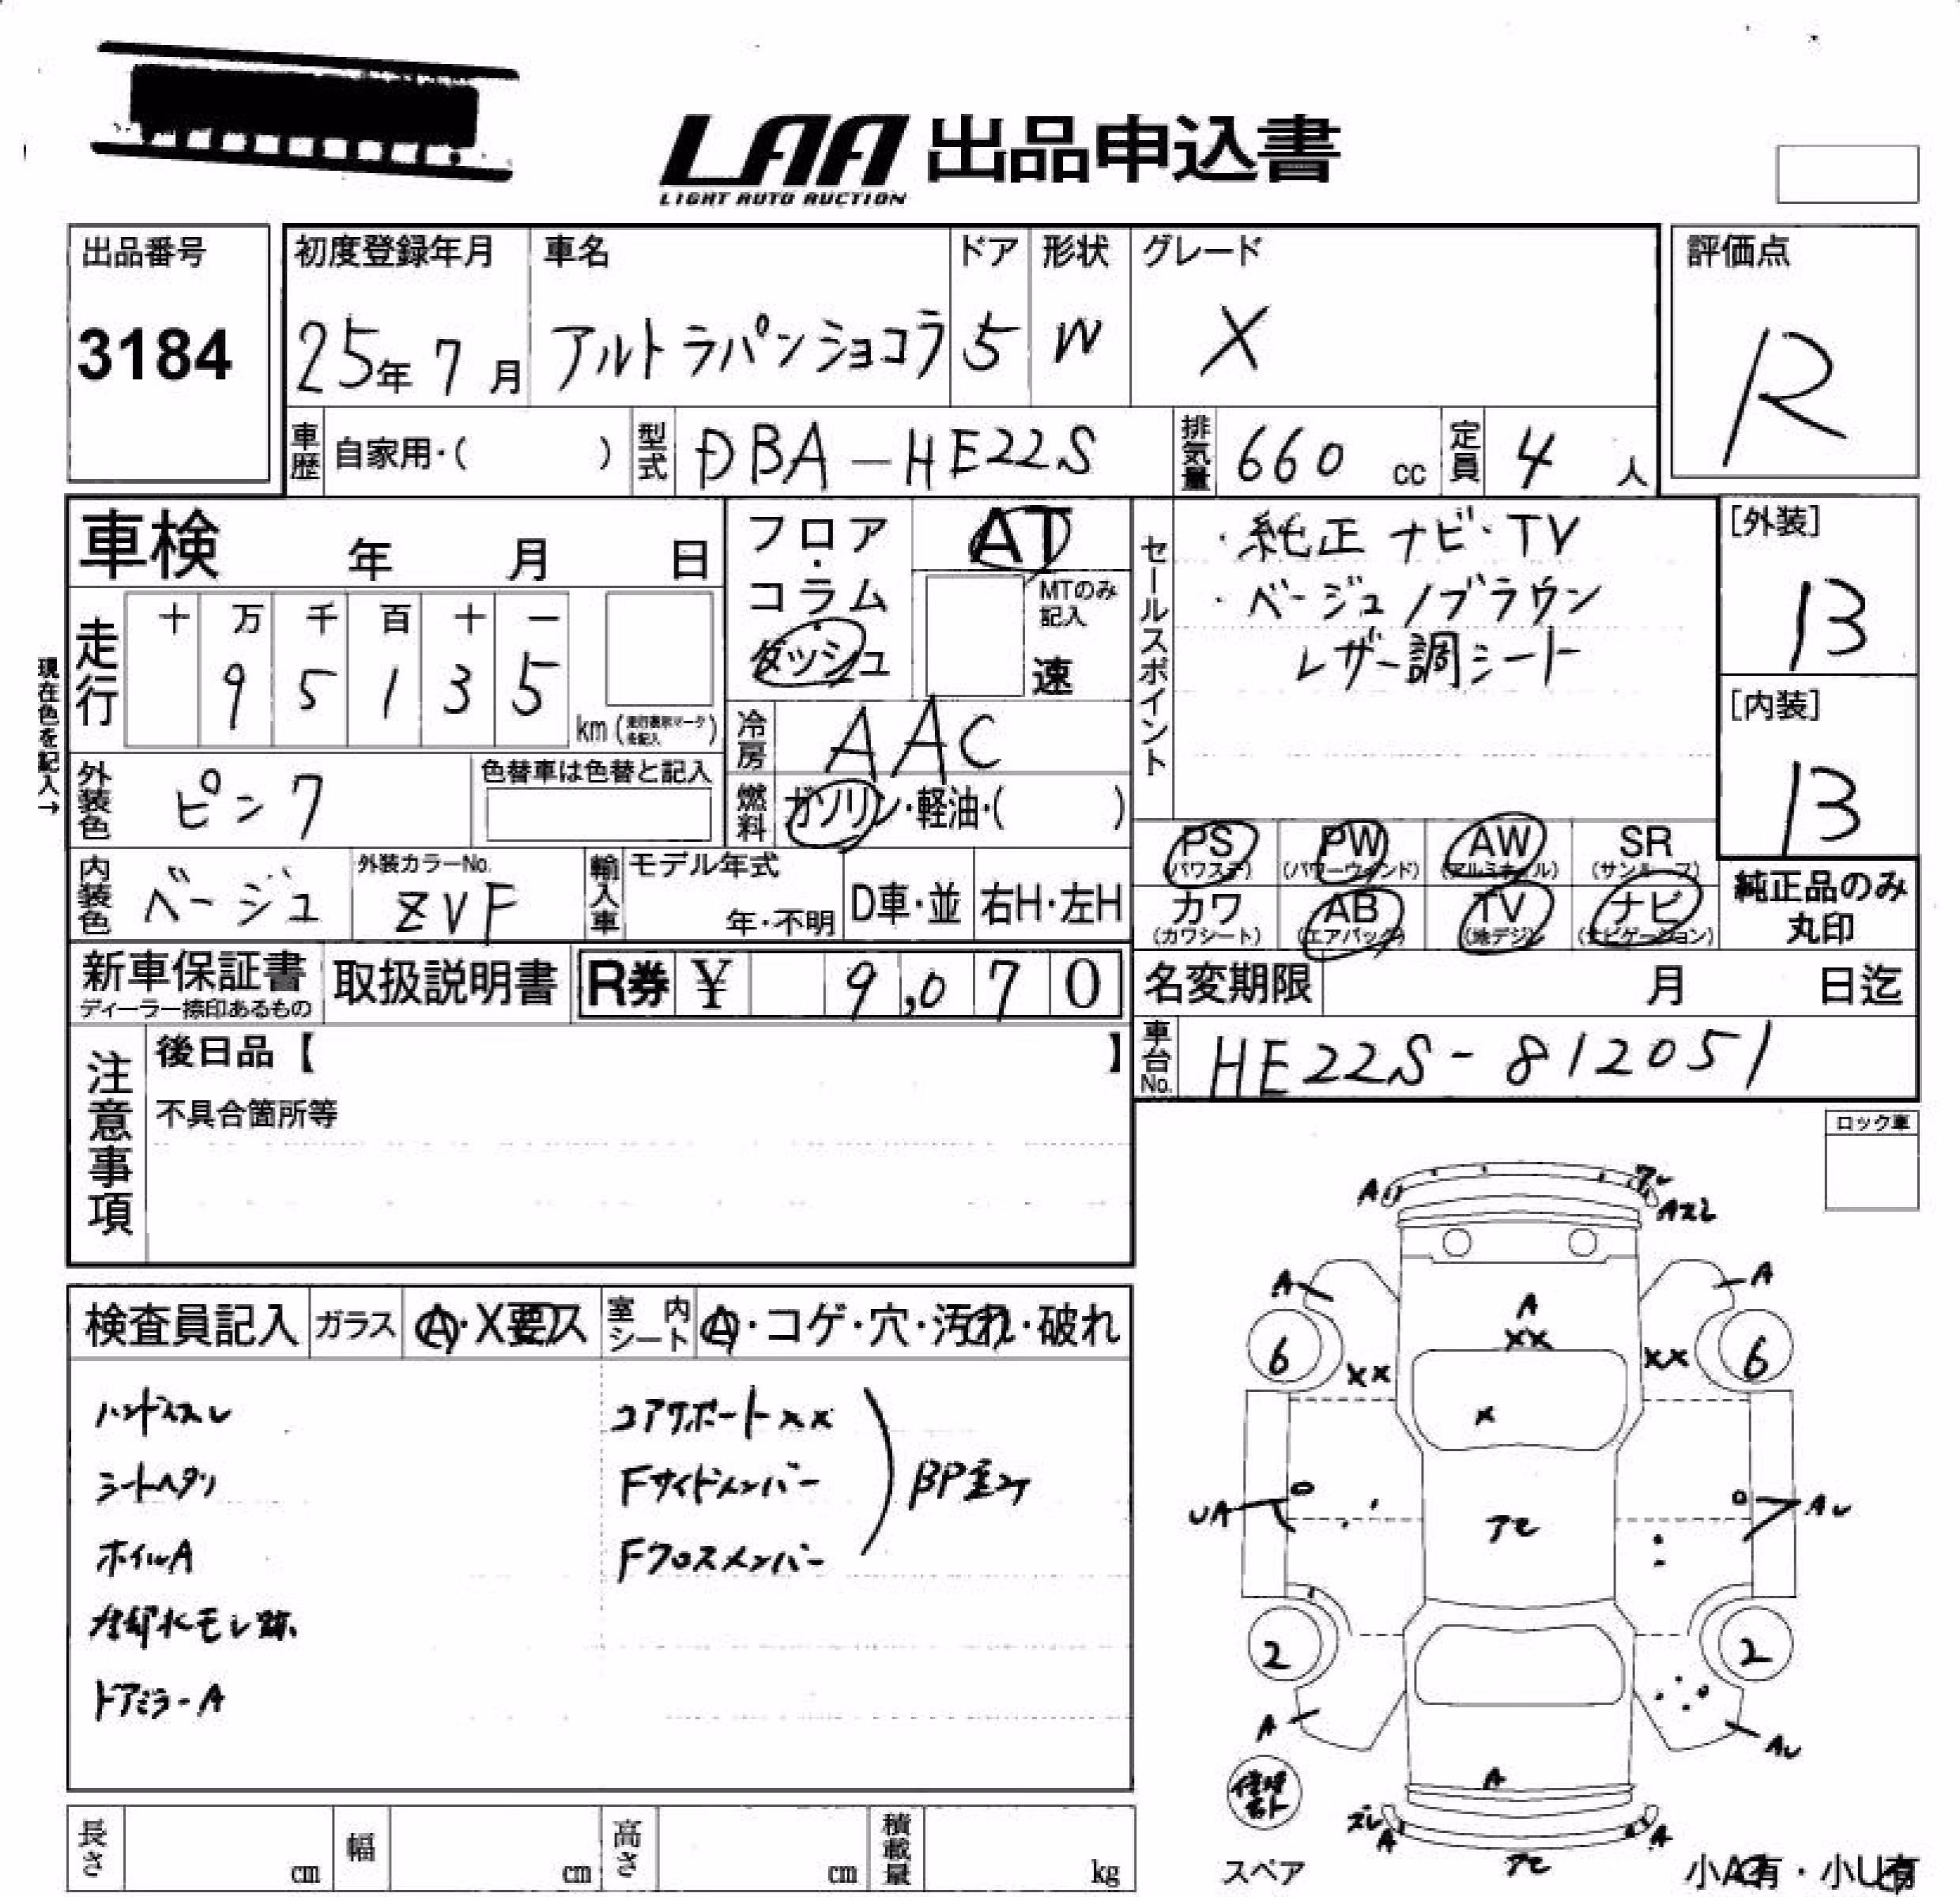 LAA 出品申込書
LIGHT AUTO AUCTION
出品番号
3184
初度登録年月 車名 ドア 形状 グレード
25年 7月 アルトラパンショコラ 5 W X
評価点
R
車歴 自家用・( ) 型式 DBA-HE22S 排気量 660 cc 定員 4 人
車検 年 月 日
フロア・コラム・ダッシュ
AT
MTのみ記入
速
セールスポイント
・純正 ナビ・TV
・ベージュ/ブラウン
レザー調シート
[外装]
B
[内装]
B
現在色を記入→
走行 十 万 千 百 十 一
9 5 1 3 5
km
冷房 AAC
外装色 ピンク 色替車は色替と記入
燃料 ガソリン・軽油・( )
PS (パワステ) PW (パワーウインド) AW (アルミホイル) SR (サンルーフ)
カワ (カワシート) AB (エアバック) TV (地デジ) ナビ (ナビゲーション)
純正品のみ丸印
内装色 ベージュ 外装カラーNo. ZVF 輸入車 モデル年式 年・不明 D車・並 右H・左H
新車保証書 ディーラー捺印あるもの 取扱説明書 R券 ¥ 9,070
名変期限 月 日迄
車台No. HE22S-812051
注意事項 後日品【 】
不具合箇所等
ロック車
検査員記入 ガラス A・X要ス 室内シート A・コゲ・穴・汚れ・破れ
ハンドルスレ コアサポートXX
シートヘタリ Fサイドメンバー
ホイルA Fクロスメンバー
冷却水モレ跡
ドアミラーA
A
Aスレ
A
A
A
XX
XX
XX
6
6
X
UA
AU
アセ
2
2
A
AU
A
ズレ
A
A
アセ
スペア
小A有・小U有
長さ cm 幅 cm 高さ cm 積載量 kg